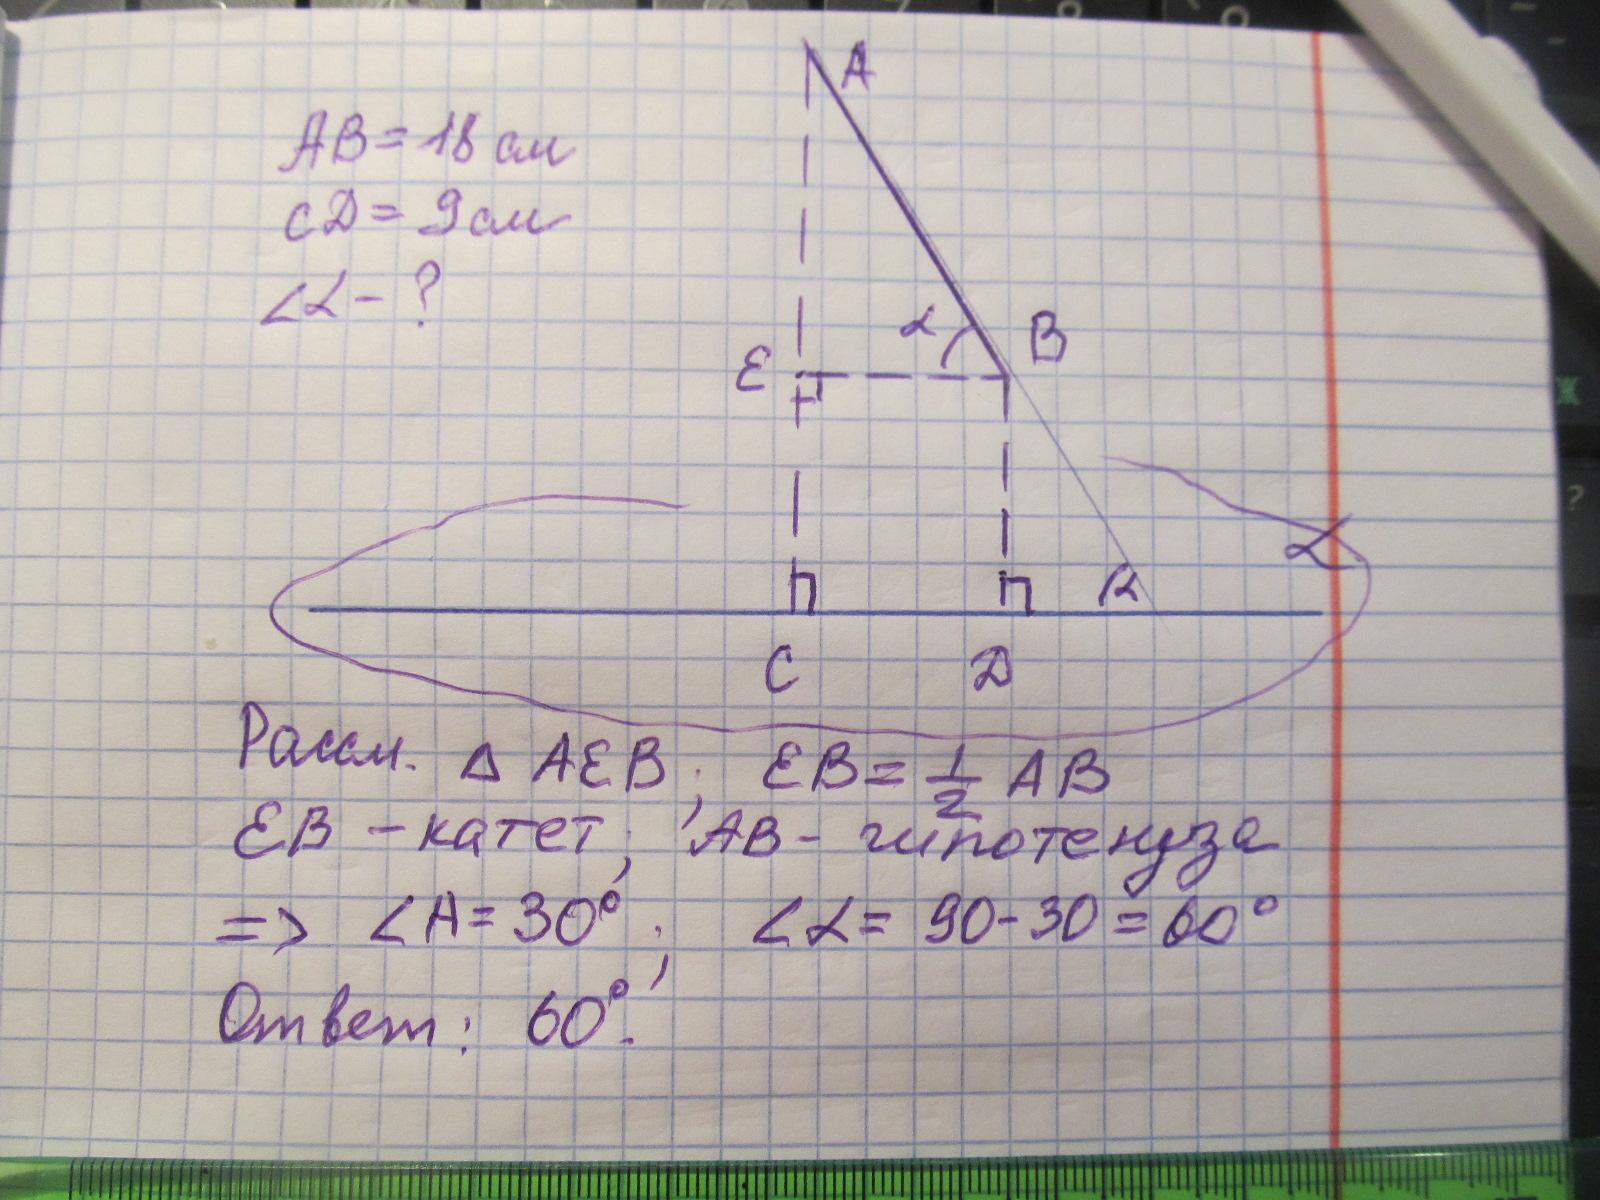 AB = 18 см
CD = 9 см
∠α - ?
A
α
B
E
α
α
C
D
Рассм. Δ AEB; EB = 1/2 AB
EB - катет; AB - гипотенуза
=> ∠A = 30°; ∠α = 90 - 30 = 60°
Ответ: 60°.